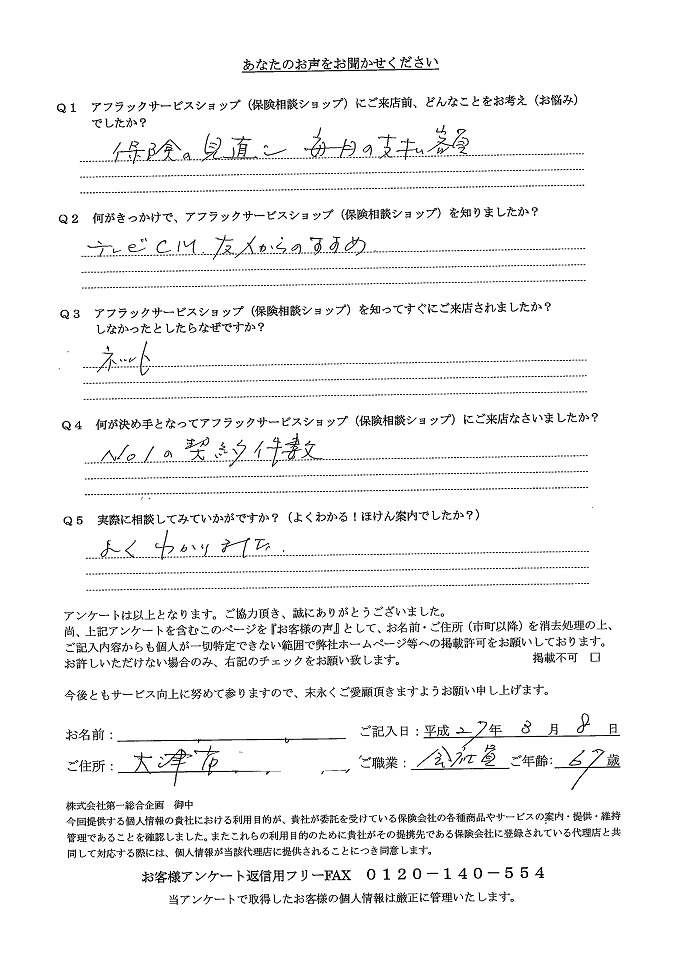 あなたのお声をお聞かせください
Q1 アフラックサービスショップ（保険相談ショップ）にご来店前、どんなことをお考え（お悩み）
でしたか？
保険の見直し 毎月の支払い
Q2 何がきっかけで、アフラックサービスショップ（保険相談ショップ）を知りましたか？
テレビCM 友人からのすすめ
Q3 アフラックサービスショップ（保険相談ショップ）を知ってすぐにご来店されましたか？
しなかったとしたらなぜですか？
ネット
Q4 何が決め手となってアフラックサービスショップ（保険相談ショップ）にご来店なさいましたか？
No1の契約件数
Q5 実際に相談してみていかがですか？（よくわかる！ほけん案内でしたか？）
よくわかりました.
アンケートは以上となります。ご協力頂き、誠にありがとうございました。
尚、上記アンケートを含むこのページを『お客様の声』として、お名前・ご住所（市町以降）を消去処理の上、
ご記入内容からも個人が一切特定できない範囲で弊社ホームページ等への掲載許可をお願いしております。
お許しいただけない場合のみ、右記のチェックをお願い致します。 掲載不可 □
今後ともサービス向上に努めて参りますので、末永くご愛顧頂きますようお願い申し上げます。
お名前： ご記入日：平成 27年 8月 8日
ご住所： 大津市 ご職業： 会社員 ご年齢： 67歳
株式会社第一総合企画 御中
今回提供する個人情報の貴社における利用目的が、貴社が委託を受けている保険会社の各種商品やサービスの案内・提供・維持
管理であることを確認しました。またこれらの利用目的のために貴社がその提携先である保険会社に登録されている代理店と共
同して対応する際には、個人情報が当該代理店に提供されることにつき同意します。
お客様アンケート返信用フリーFAX 0120－140－554
当アンケートで取得したお客様の個人情報は厳正に管理いたします。